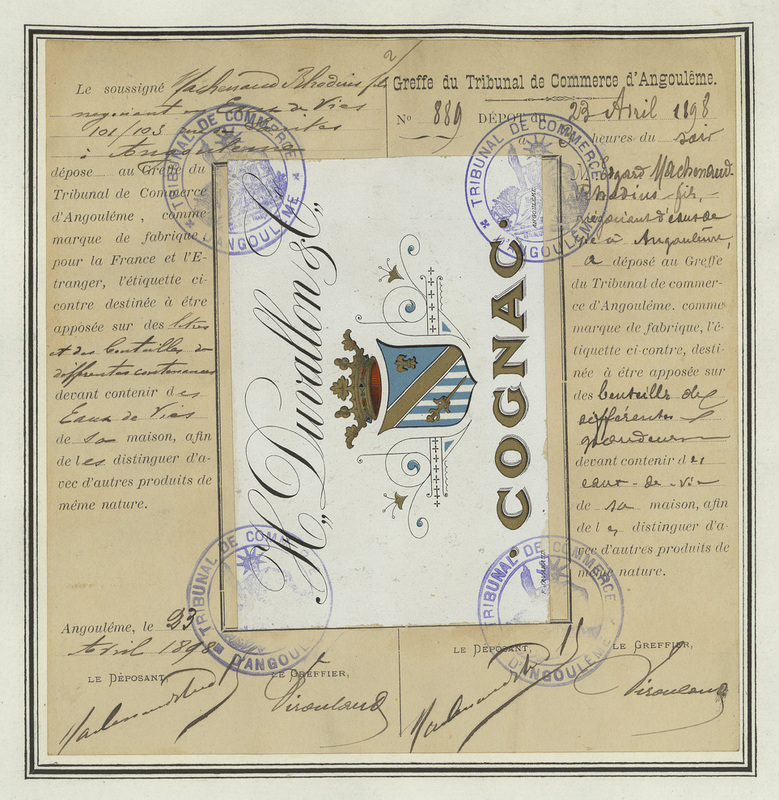 2
Le soussigné Machenaud Rhodius fils
negociant en Eaux de Vies
101/103
à Angoulême
dépose au Greffe du
Tribunal de Commerce
d'Angoulême, comme
marque de fabrique,
pour la France et l'E-
tranger, l'étiquette ci-
contre destinée à être
apposée sur des litres
et des bouteilles de
differentes contenances
devant contenir des
Eaux de Vies
de sa maison, afin
de les distinguer d'a-
vec d'autres produits de
même nature.
Angoulême, le 23
Avril 1898
LE DÉPOSANT,
LE GREFFIER,
H. Duvallon & Co
COGNAC.
Greffe du Tribunal de Commerce d'Angoulême.
No 889 DÉPÔT du 23 Avril 1898
à heures du soir
M Machenaud-
Rhodius fils,
négociant d'eaux de
vie à Angoulême,
a déposé au Greffe
du Tribunal de commer-
ce d'Angoulême. comme
marque de fabrique, l'é-
tiquette ci-contre, desti-
née à être apposée sur
des bouteilles de
différentes
grandeurs
devant contenir des
eaux-de-vie
de sa maison, afin
de les distinguer d'a-
vec d'autres produits de
même nature.
LE DÉPOSANT,
LE GREFFIER,
TRIBUNAL DE COMMERCE D'ANGOULÊME
TRIBUNAL DE COMMERCE D'ANGOULÊME
TRIBUNAL DE COMMERCE D'ANGOULÊME
TRIBUNAL DE COMMERCE D'ANGOULÊME